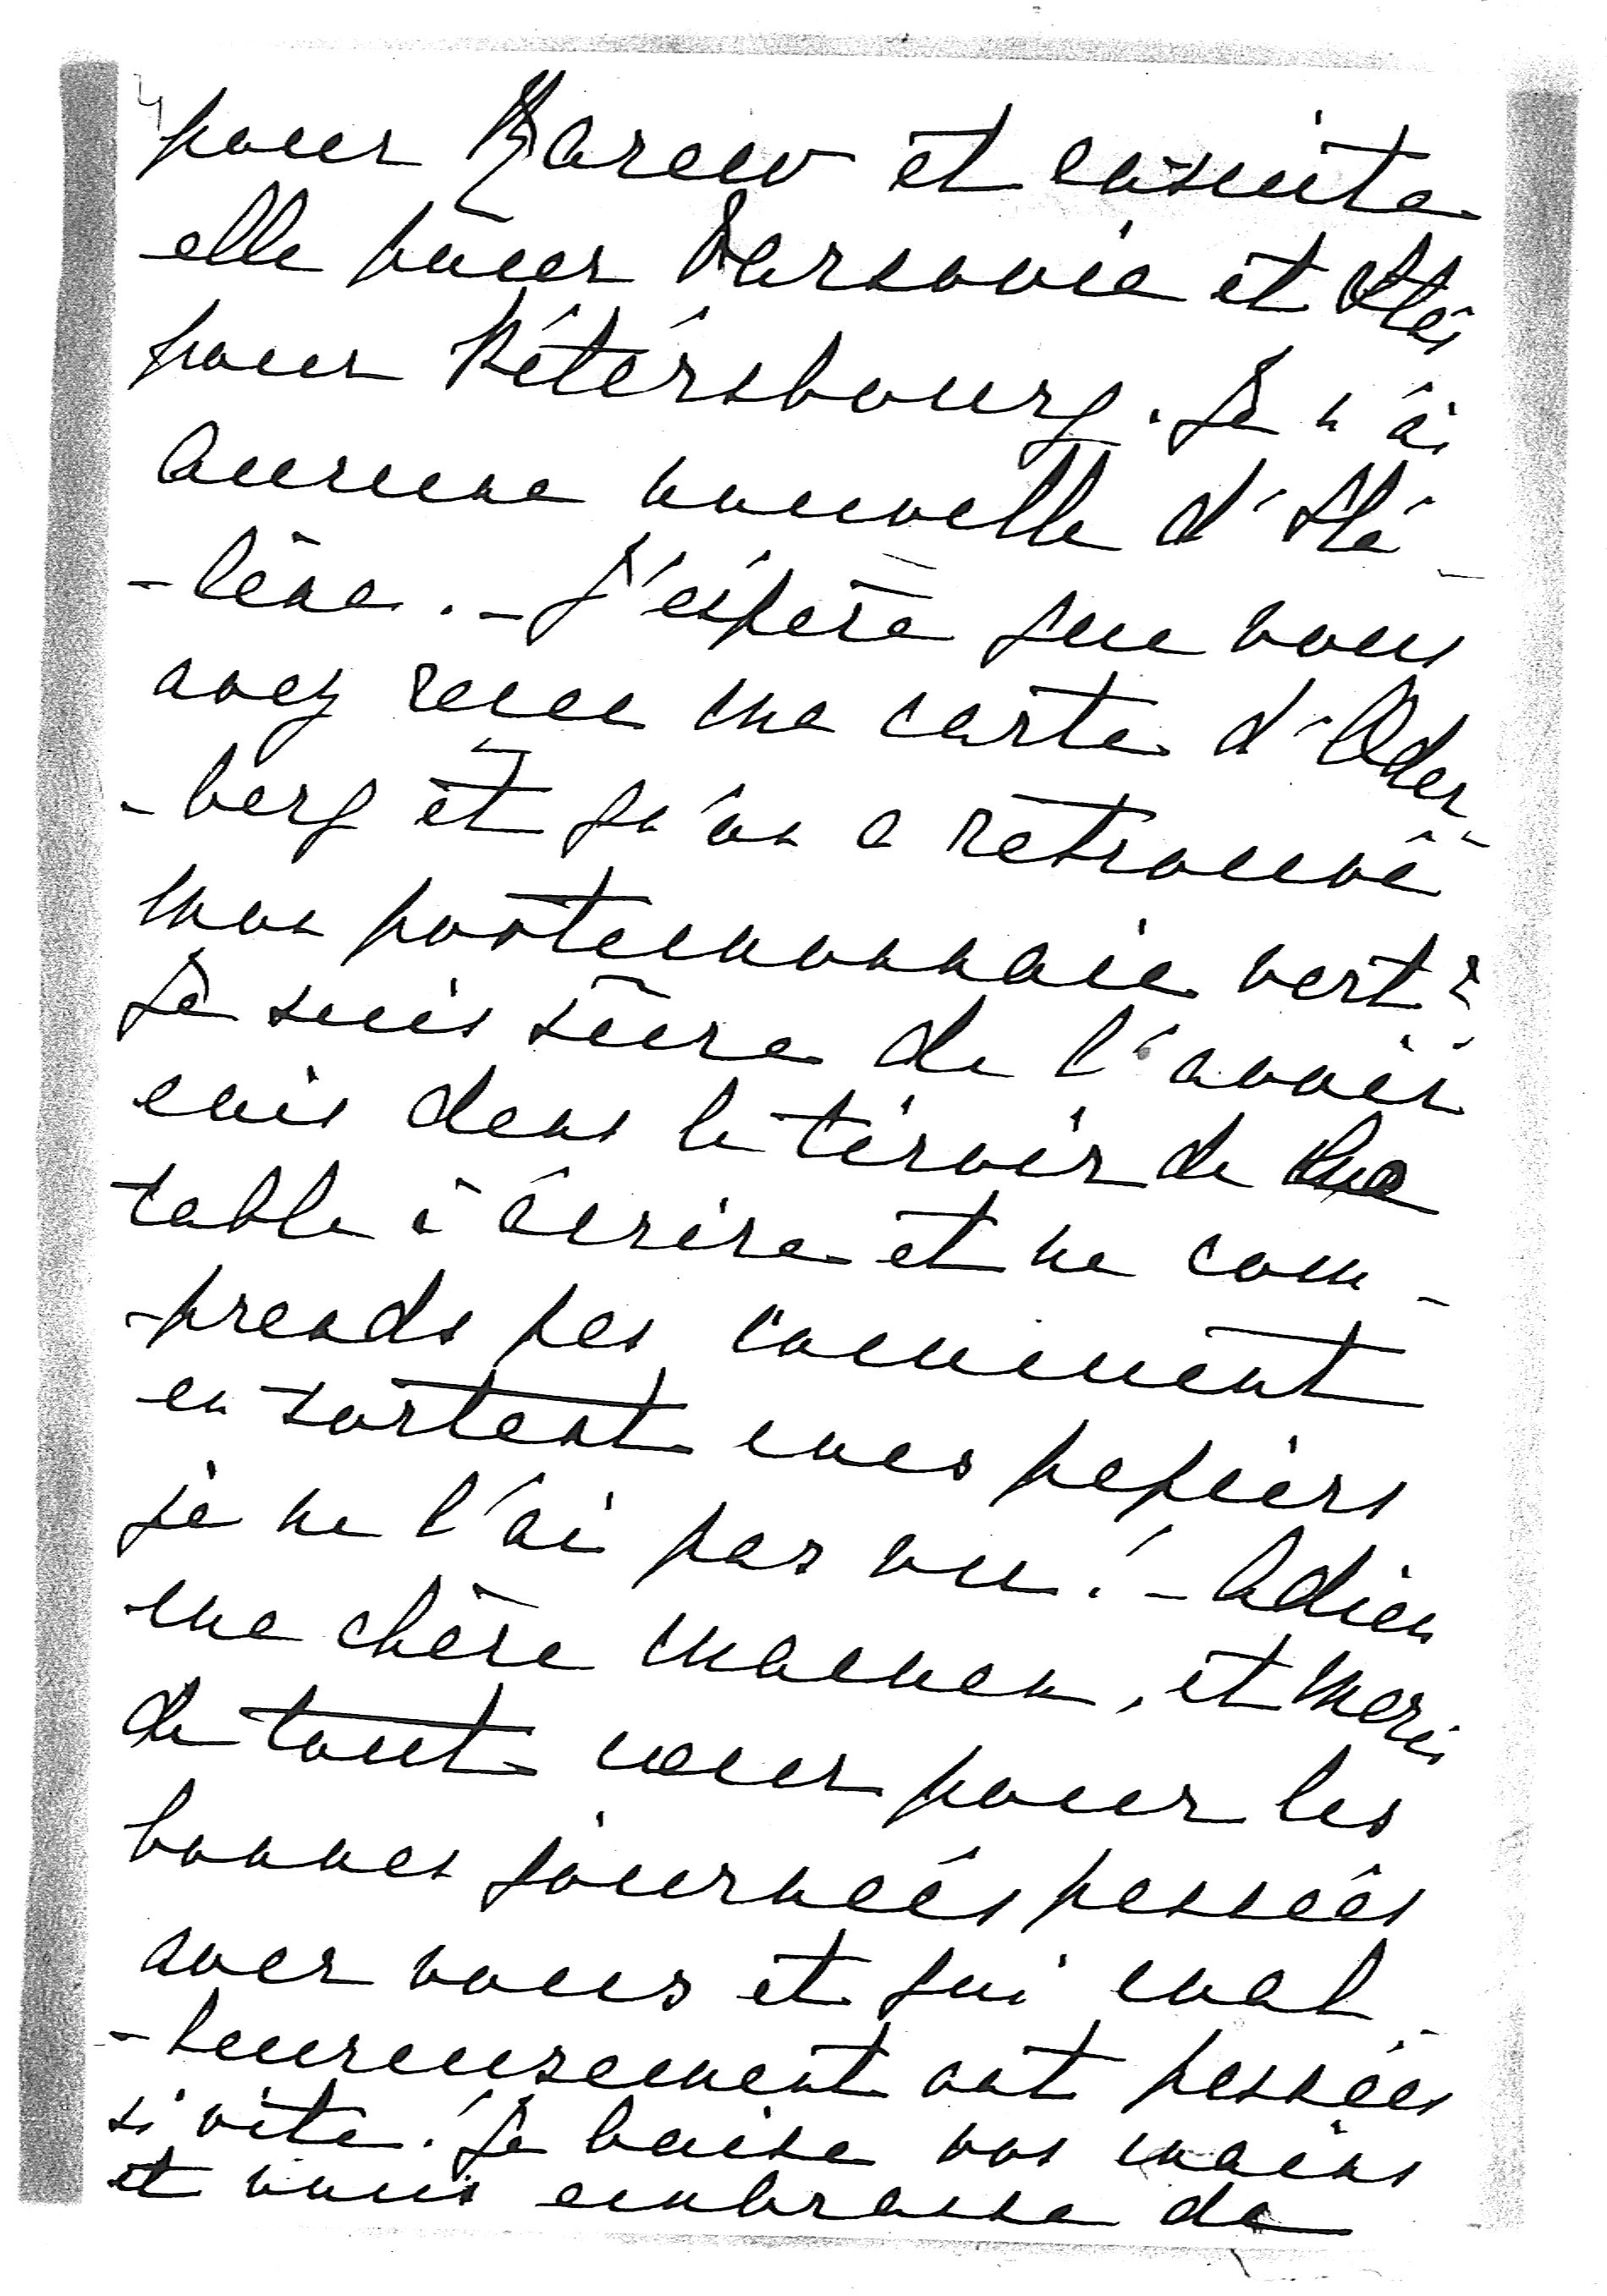 4
pour Narew et ensuite
elle pour Varsovie et Stas
pour Pétersbourg. Je n'ai
aucune nouvelle d'Hé-
-lène. - J'espère que vous
avez reçu ma carte d'Oder-
-berg et qu'on a retrouvé
mon portemonnaie vert?
Je suis sûre de l'avoir
mis dans le tiroir de ma
table à écrire et ne com-
-prends pas comment
en sortant mes papiers
je ne l'ai pas vu! - Adieu
ma chère maman, et merci
de tout cœur pour les
bonnes journées passées
avec vous et qui mal-
-heureusement ont passées
si vite! Je baise vos mains
et vous embrasse de